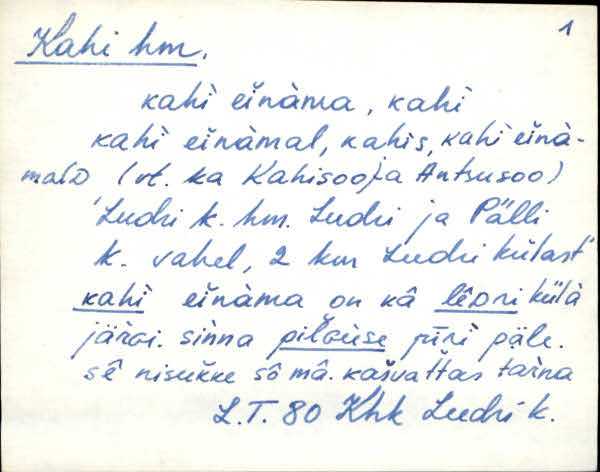 1
Kahi hm.
kahì ěinàma, kahi
kahì ěinàmal, kahis, kahi ěinà-
malD (vt. ka Kahisoo ja Antsusoo)
Ludri k. hm. Ludri ja Pälli
k. vahel, 2 km Ludri külast
kahì ěinàma on kâ lêDri külà
järGi. sinna piľGùse pìri päle.
sê nisukke sô mâ. kašvattas tarna
L.T. 80 Khk Ludri k.